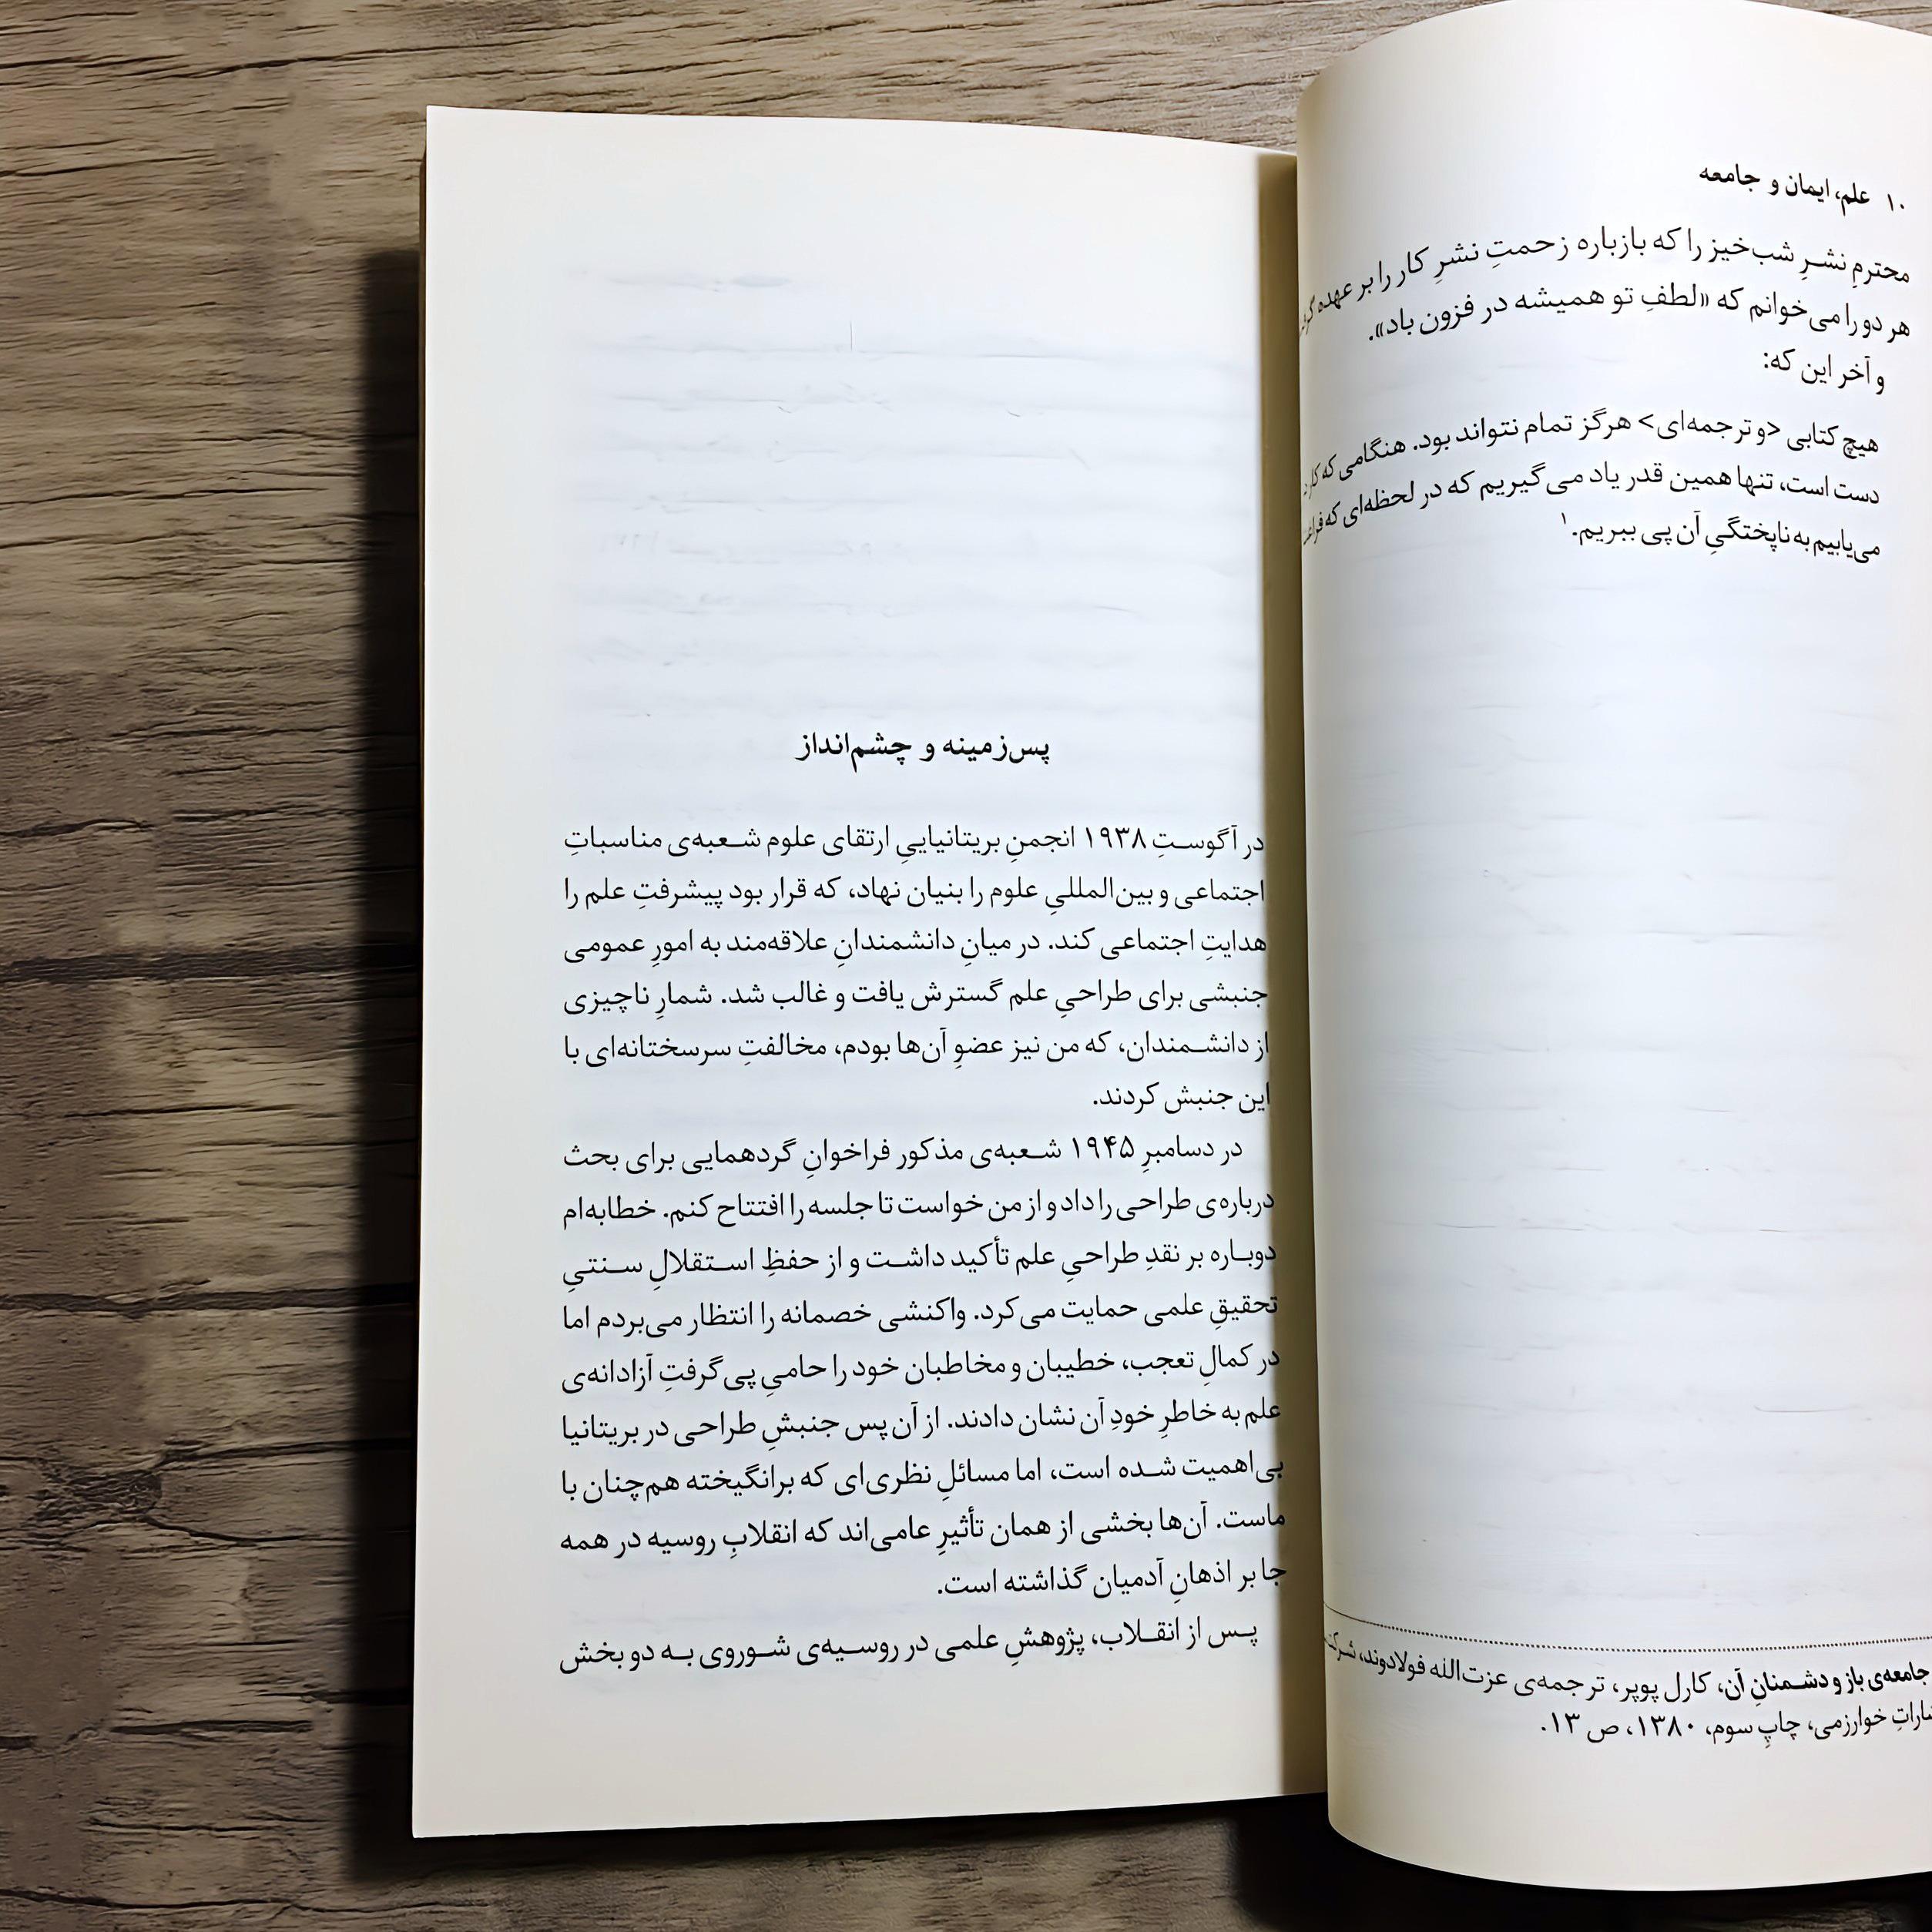 ۱۰ علم، ایمان و جامعه
محترمِ نشرِ شب‌خیز را که بازباره زحمتِ نشرِ کار را بر عهده
هر دو را می‌خوانم که «لطفِ تو همیشه در فزون باد».
و آخر این که:
هیچ کتابی <و ترجمه‌ای> هرگز تمام نتواند بود. هنگامی که
دست است، تنها همین قدر یاد می‌گیریم که در لحظه‌ای که
می‌یابیم به ناپختگیِ آن پی ببریم.۱
جامعه‌ی باز و دشمنانِ آن، کارل پوپر، ترجمه‌ی عزت‌الله فولادوند،
خوارزمی، چاپِ سوم، ۱۳۸۰، ص ۱۳.
پس‌زمینه و چشم‌انداز
در آگوستِ ۱۹۳۸ انجمنِ بریتانیاییِ ارتقای علوم شعبه‌ی مناسباتِ
اجتماعی و بین‌المللیِ علوم را بنیان نهاد، که قرار بود پیشرفتِ علم را
هدایتِ اجتماعی کند. در میانِ دانشمندانِ علاقه‌مند به امورِ عمومی
جنبشی برای طراحیِ علم گسترش یافت و غالب شد. شمارِ ناچیزی
از دانشمندان، که من نیز عضوِ آن‌ها بودم، مخالفتِ سرسختانه‌ای با
این جنبش کردند.
در دسامبرِ ۱۹۴۵ شعبه‌ی مذکور فراخوانِ گردهمایی برای بحث
درباره‌ی طراحی را داد و از من خواست تا جلسه را افتتاح کنم. خطابه‌ام
دوباره بر نقدِ طراحیِ علم تأکید داشت و از حفظِ استقلالِ سنتیِ
تحقیقِ علمی حمایت می‌کرد. واکنشی خصمانه را انتظار می‌بردم اما
در کمالِ تعجب، خطیبان و مخاطبان خود را حامیِ پی‌گرفتِ آزادانه‌ی
علم به خاطرِ خودِ آن نشان دادند. از آن پس جنبشِ طراحی در بریتانیا
بی‌اهمیت شده است، اما مسائلِ نظری‌ای که برانگیخته هم‌چنان با
ماست. آن‌ها بخشی از همان تأثیرِ عامی‌اند که انقلابِ روسیه در همه
جا بر اذهانِ آدمیان گذاشته است.
پس از انقلاب، پژوهشِ علمی در روسیه‌ی شوروی به دو بخش